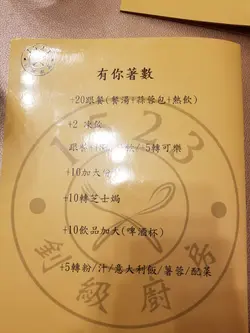 有你著數
+20跟餐(餐湯+蒜蓉包+熱飲)
+2 凍飲
跟餐 /+5轉可樂
+10加大
+10轉芝士焗
+10飲品加大(啤酒杯)
+5轉粉/汁/意大利飯/薯蓉/配菜
1523
劍級廚房